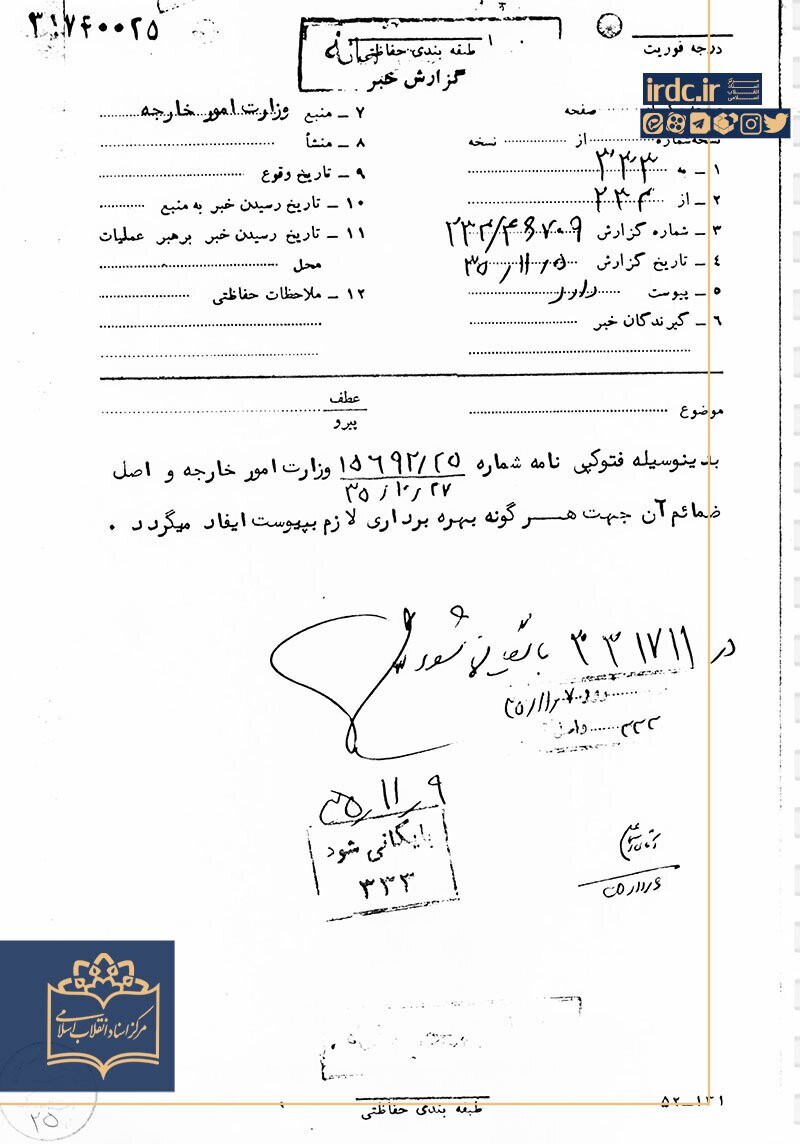 ۳۱۷۴۰۰۲۵
درجه فوریت
طبقه بندی حفاظتی
گزارش خبر
irdc.ir
مرکز اسناد انقلاب اسلامی
صفحه
نسخه شماره ........ از ........ نسخه
۱ ــ به ۳۳۳
۲ ــ از ۲۳۴
۳ ــ شماره گزارش
۴ ــ تاریخ گزارش ۳۵/۱۱/۵
۵ ــ پیوست دارد
۶ ــ گیرندگان خبر
۷ ــ منبع وزارت امور خارجه
۸ ــ منشأ
۹ ــ تاریخ وقوع
۱۰ ــ تاریخ رسیدن خبر به منبع
۱۱ ــ تاریخ رسیدن خبر برهبر عملیات
محل
۱۲ ــ ملاحظات حفاظتی
موضوع
عطف
پیرو
بدینوسیله فتوکپی نامه شماره ۱۵۶۹۲/۲۵ وزارت امور خارجه و اصل
۳۵/۱۰/۲۷
ضمائم آن جهت هر گونه بهره برداری لازم بپیوست ایفاد میگردد .
در ۳۳۱۷۱۱ بایگانی شود
۳۵/۱۱/۹
بایگانی شود
۳۳۳
مرکز اسناد انقلاب اسلامی
۲۵
طبقه بندی حفاظتی
۵۲ــ۱۳۱